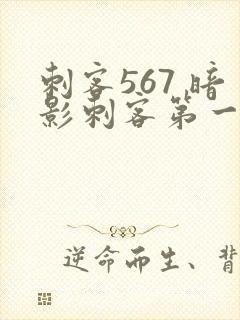 刺客567 暗
影刺客第一
逆命而生、背